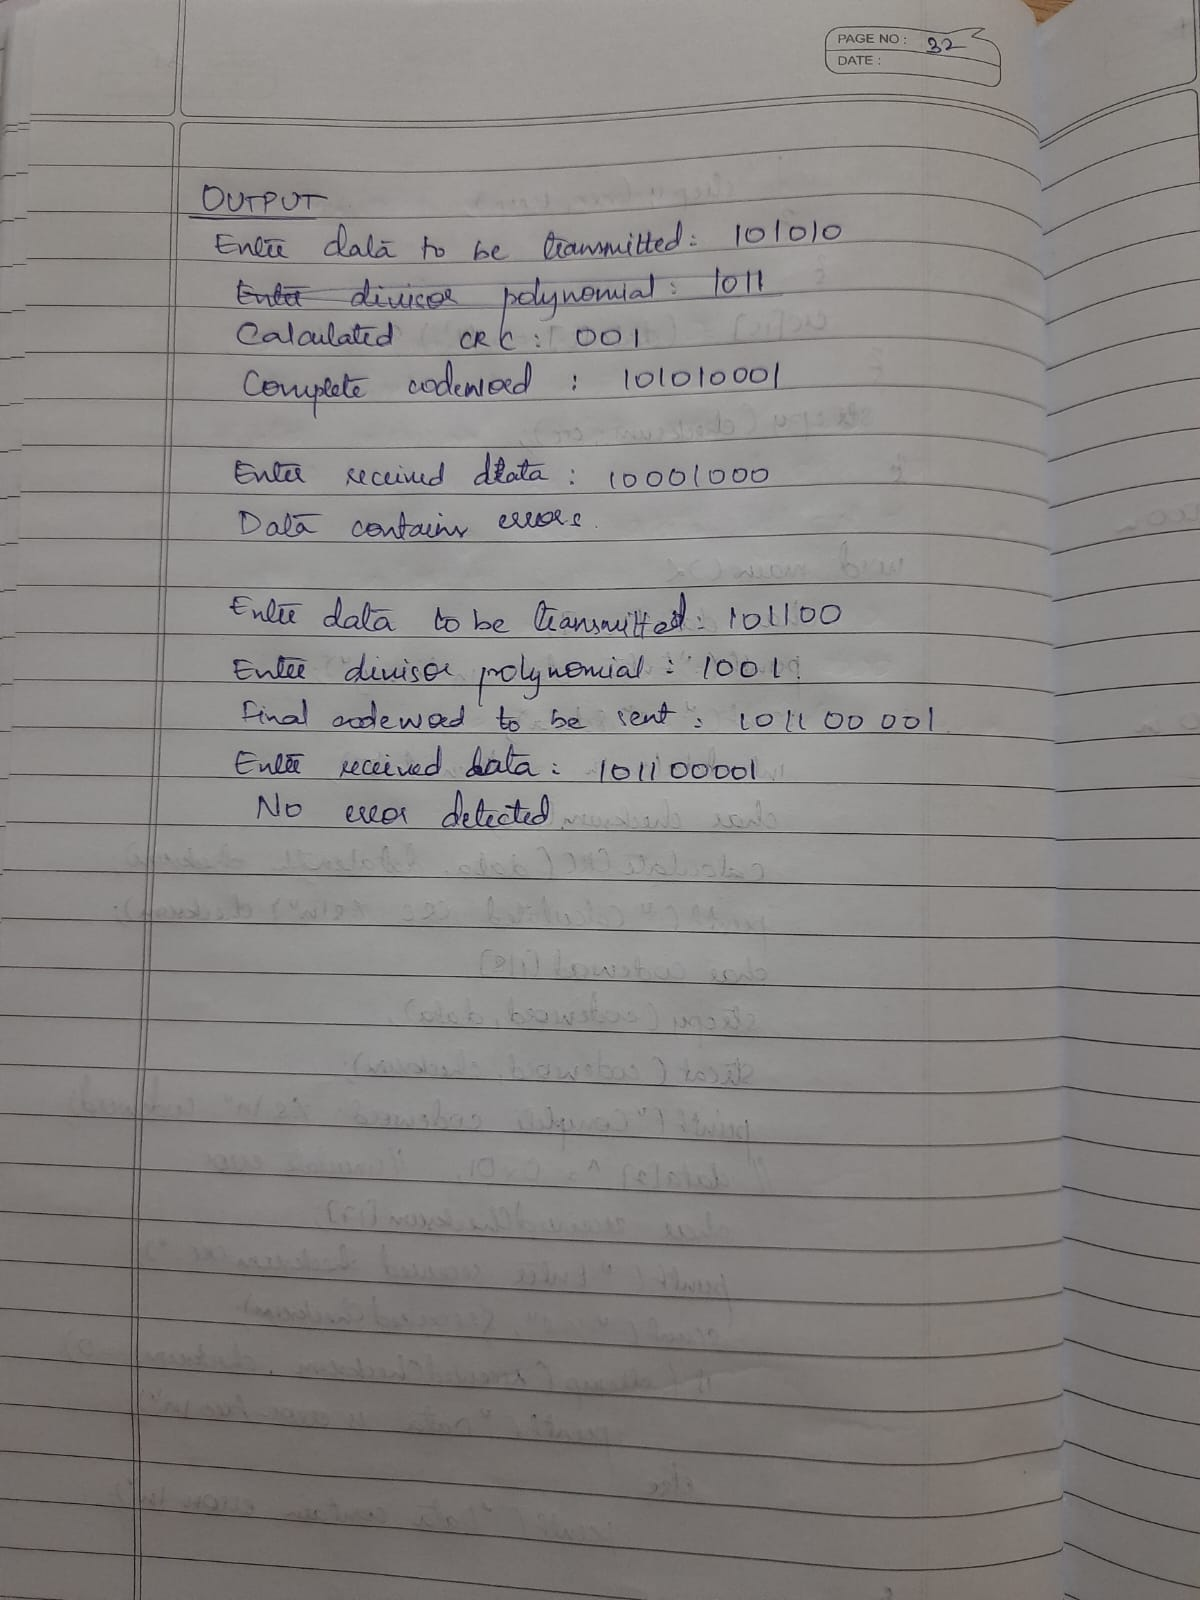 PAGE NO: 32
DATE:
OUTPUT
Enter data to be transmitted: 101010
Enter divisor polynomial: 1011
Calculated CRC: 001
Complete codeword : 101010001
Enter received data : 10001000
Data contains errors.
Enter data to be transmitted: 101100
Enter divisor polynomial : 1001
Final codeword to be sent : 101100001
Enter received data: 101100001
No error detected.